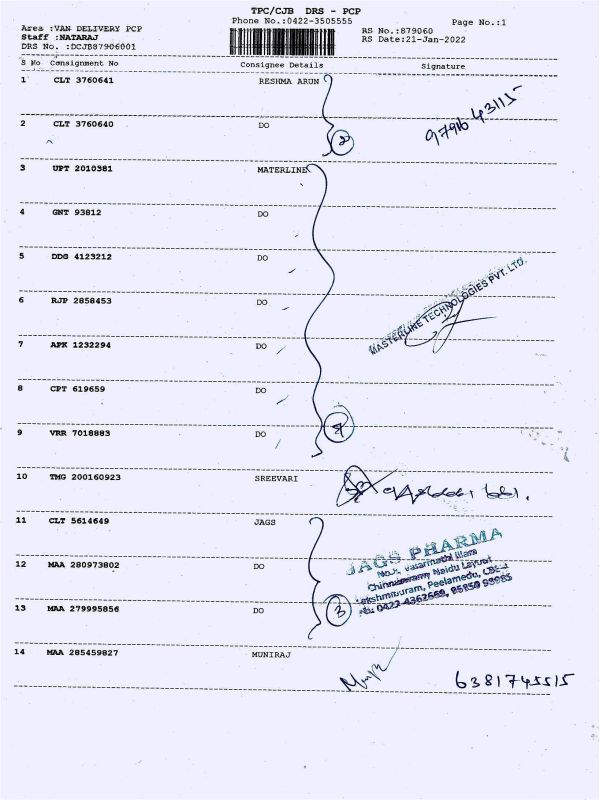 TPC/CJB DRS - PCP
Phone No.:0422-3505555
Page No.:1
Area :VAN DELIVERY PCP
Staff :NATARAJ
DRS No. :DCJB87906001
RS No.:879060
RS Date:21-Jan-2022
S No Consignment No Consignee Details Signature
1 CLT 3760641 RESHMA ARUN
2 CLT 3760640 DO
2
97916 43115
3 UPT 2010381 MATERLINE
4 GNT 93812 DO
5 DDG 4123212 DO
6 RJP 2858453 DO
MASTERLINE TECHNOLOGIES PVT. LTD.
7 APK 1232294 DO
8 CPT 619659 DO
9 VRR 7018883 DO
7
10 TMG 200160923 SREEVARI
11 CLT 5614649 JAGS
12 MAA 280973802 DO
13 MAA 279995856 DO
3
JAGS PHARMA
Naidu Layout
Peelamedu,
14 MAA 285459827 MUNIRAJ
6381745515